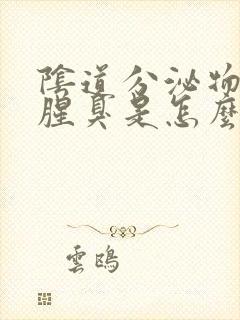 陰道分泌物
腥臭是怎麼
雲鴎